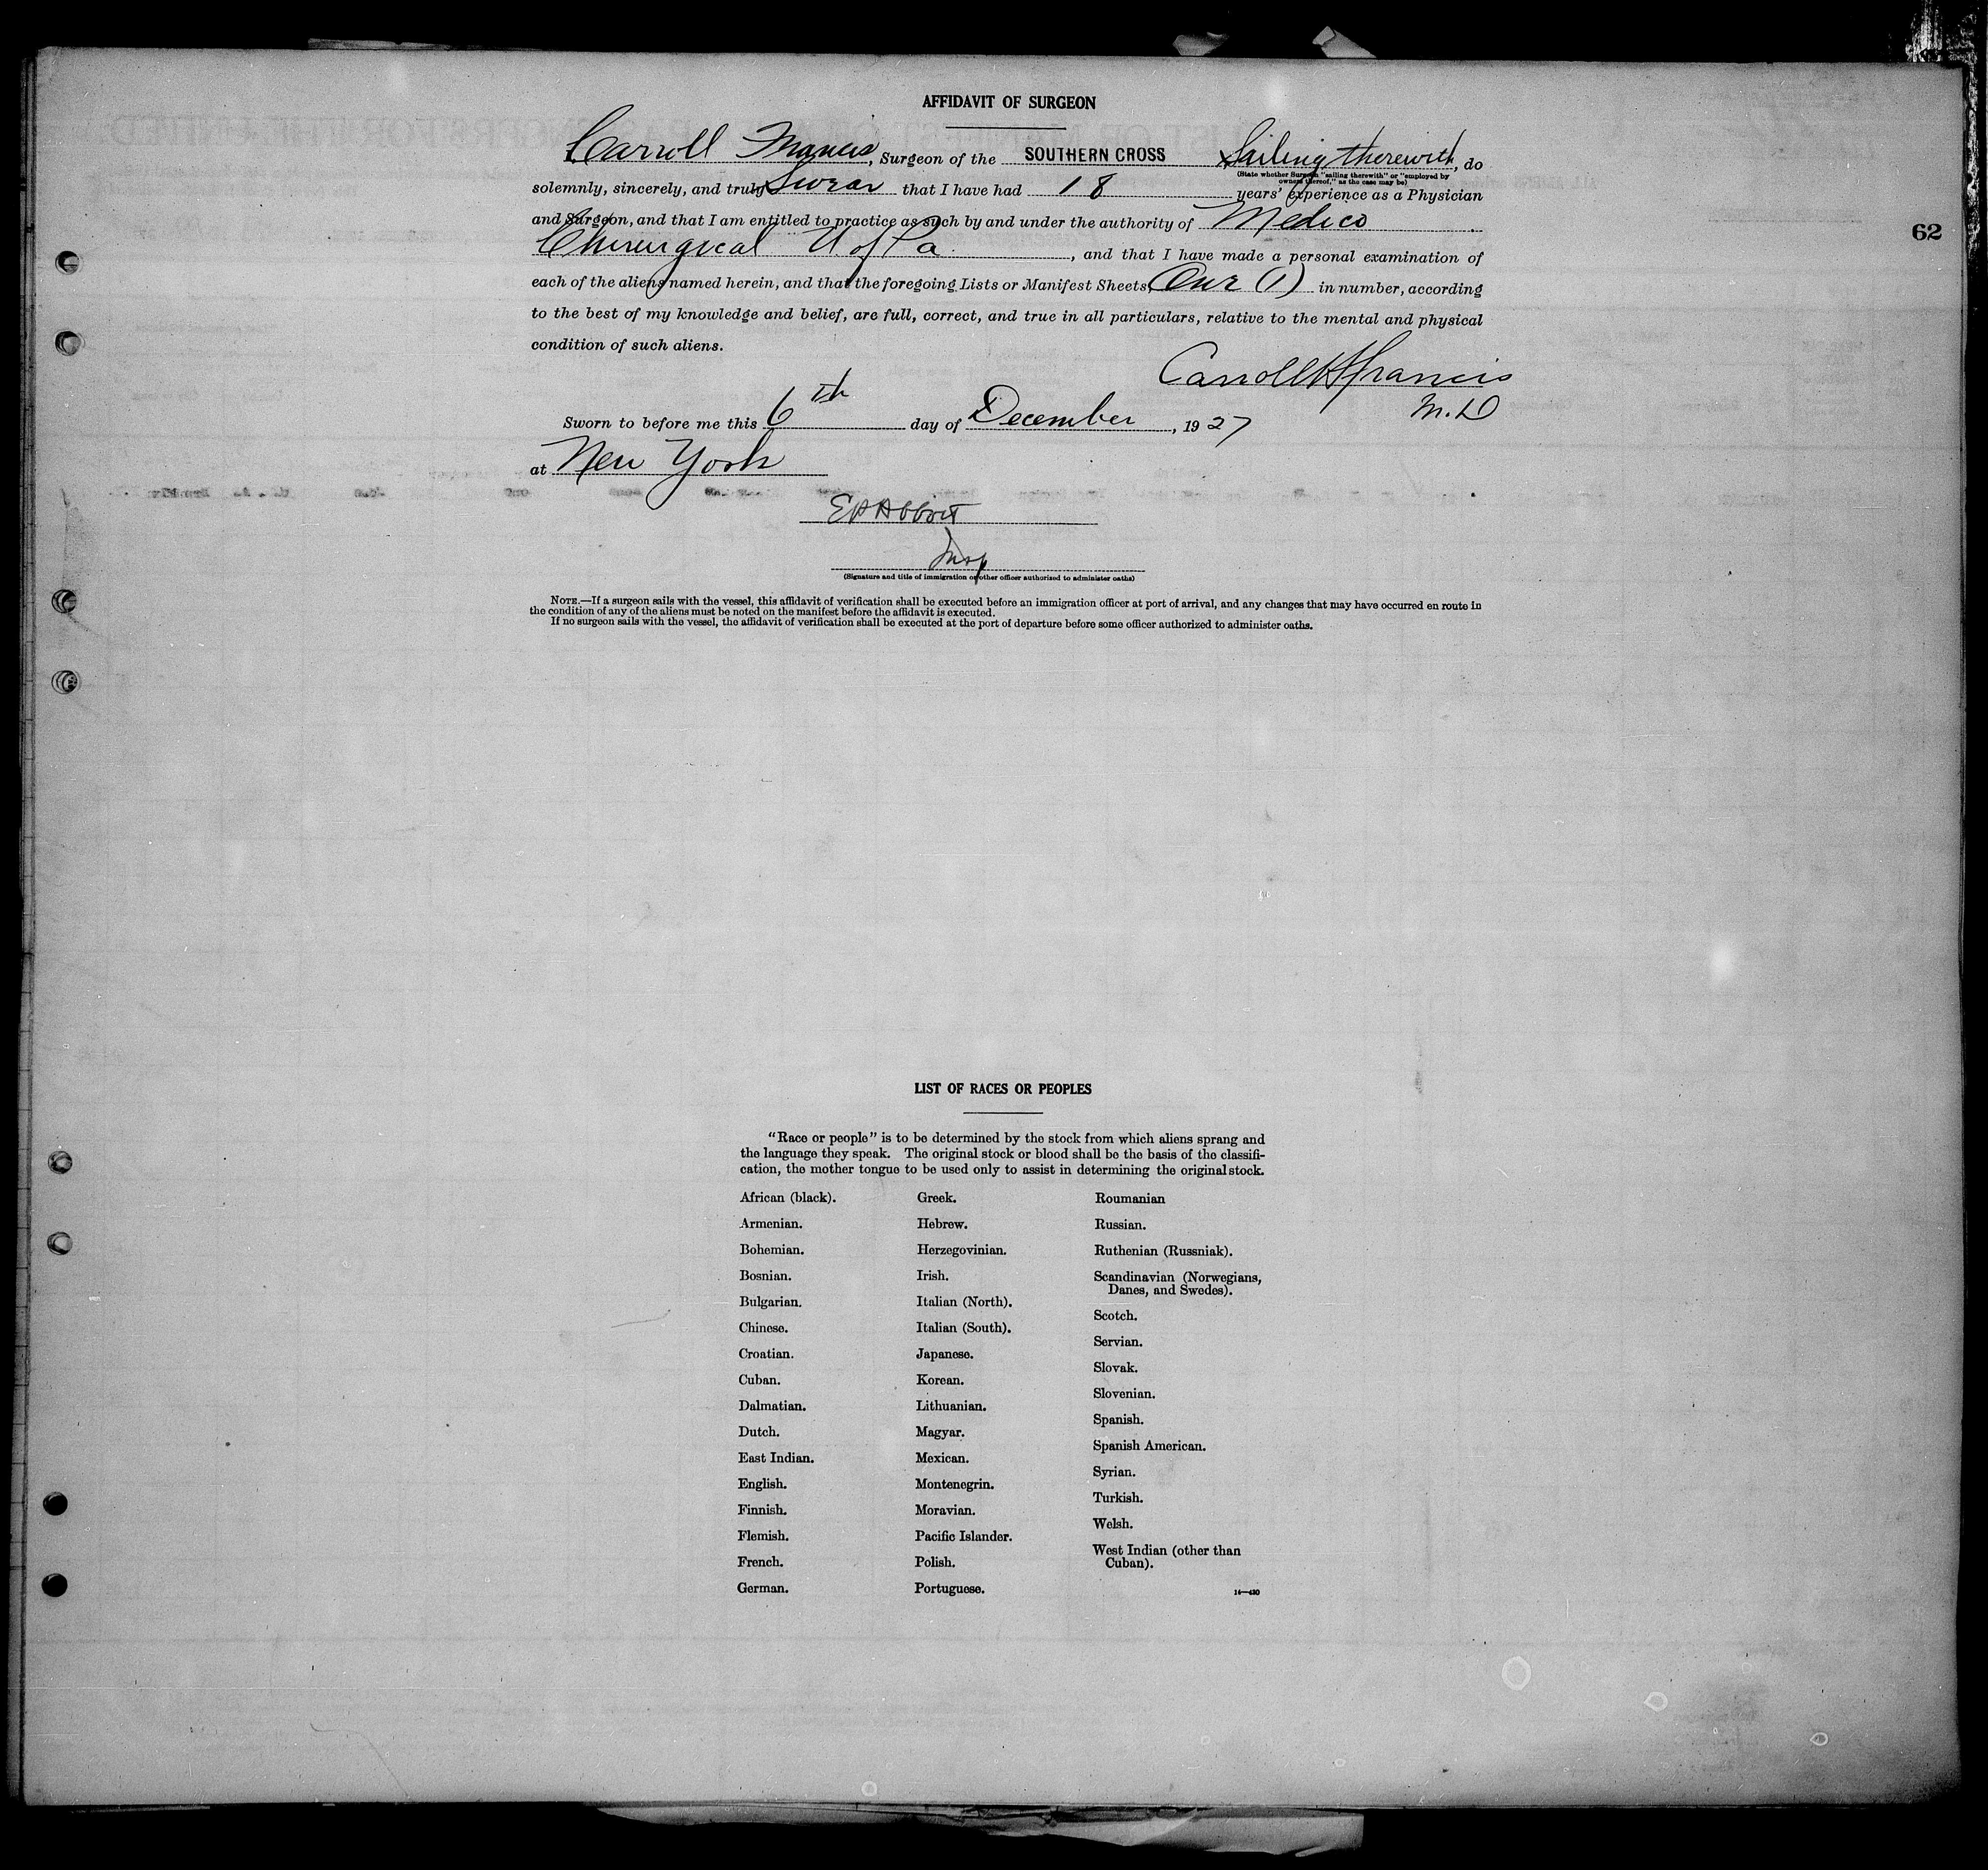 AFFIDAVIT OF SURGEON
Carroll Francis, Surgeon of the SOUTHERN CROSS Sailing therewith, do
(State whether Surgeon "sailing therewith" or "employed by
owners thereof," as the case may be)
solemnly, sincerely, and truly Swear that I have had 18 years' experience as a Physician
and Surgeon, and that I am entitled to practice as such by and under the authority of Medico
Chirurgical U. of Pa., and that I have made a personal examination of
62
each of the aliens named herein, and that the foregoing Lists or Manifest Sheets, One (1) in number, according
to the best of my knowledge and belief, are full, correct, and true in all particulars, relative to the mental and physical
condition of such aliens.
Carroll H Francis
M.D
Sworn to before me this 6th day of December, 1927
at New York
E A Abbott
Insp
(Signature and title of immigration or other officer authorized to administer oaths)
NOTE.—If a surgeon sails with the vessel, this affidavit of verification shall be executed before an immigration officer at port of arrival, and any changes that may have occurred en route in
the condition of any of the aliens must be noted on the manifest before the affidavit is executed.
If no surgeon sails with the vessel, the affidavit of verification shall be executed at the port of departure before some officer authorized to administer oaths.
LIST OF RACES OR PEOPLES
"Race or people" is to be determined by the stock from which aliens sprang and
the language they speak. The original stock or blood shall be the basis of the classifi-
cation, the mother tongue to be used only to assist in determining the original stock.
African (black).
Armenian.
Bohemian.
Bosnian.
Bulgarian.
Chinese.
Croatian.
Cuban.
Dalmatian.
Dutch.
East Indian.
English.
Finnish.
Flemish.
French.
German.
Greek.
Hebrew.
Herzegovinian.
Irish.
Italian (North).
Italian (South).
Japanese.
Korean.
Lithuanian.
Magyar.
Mexican.
Montenegrin.
Moravian.
Pacific Islander.
Polish.
Portuguese.
Roumanian
Russian.
Ruthenian (Russniak).
Scandinavian (Norwegians,
Danes, and Swedes).
Scotch.
Servian.
Slovak.
Slovenian.
Spanish.
Spanish American.
Syrian.
Turkish.
Welsh.
West Indian (other than
Cuban).
14—430